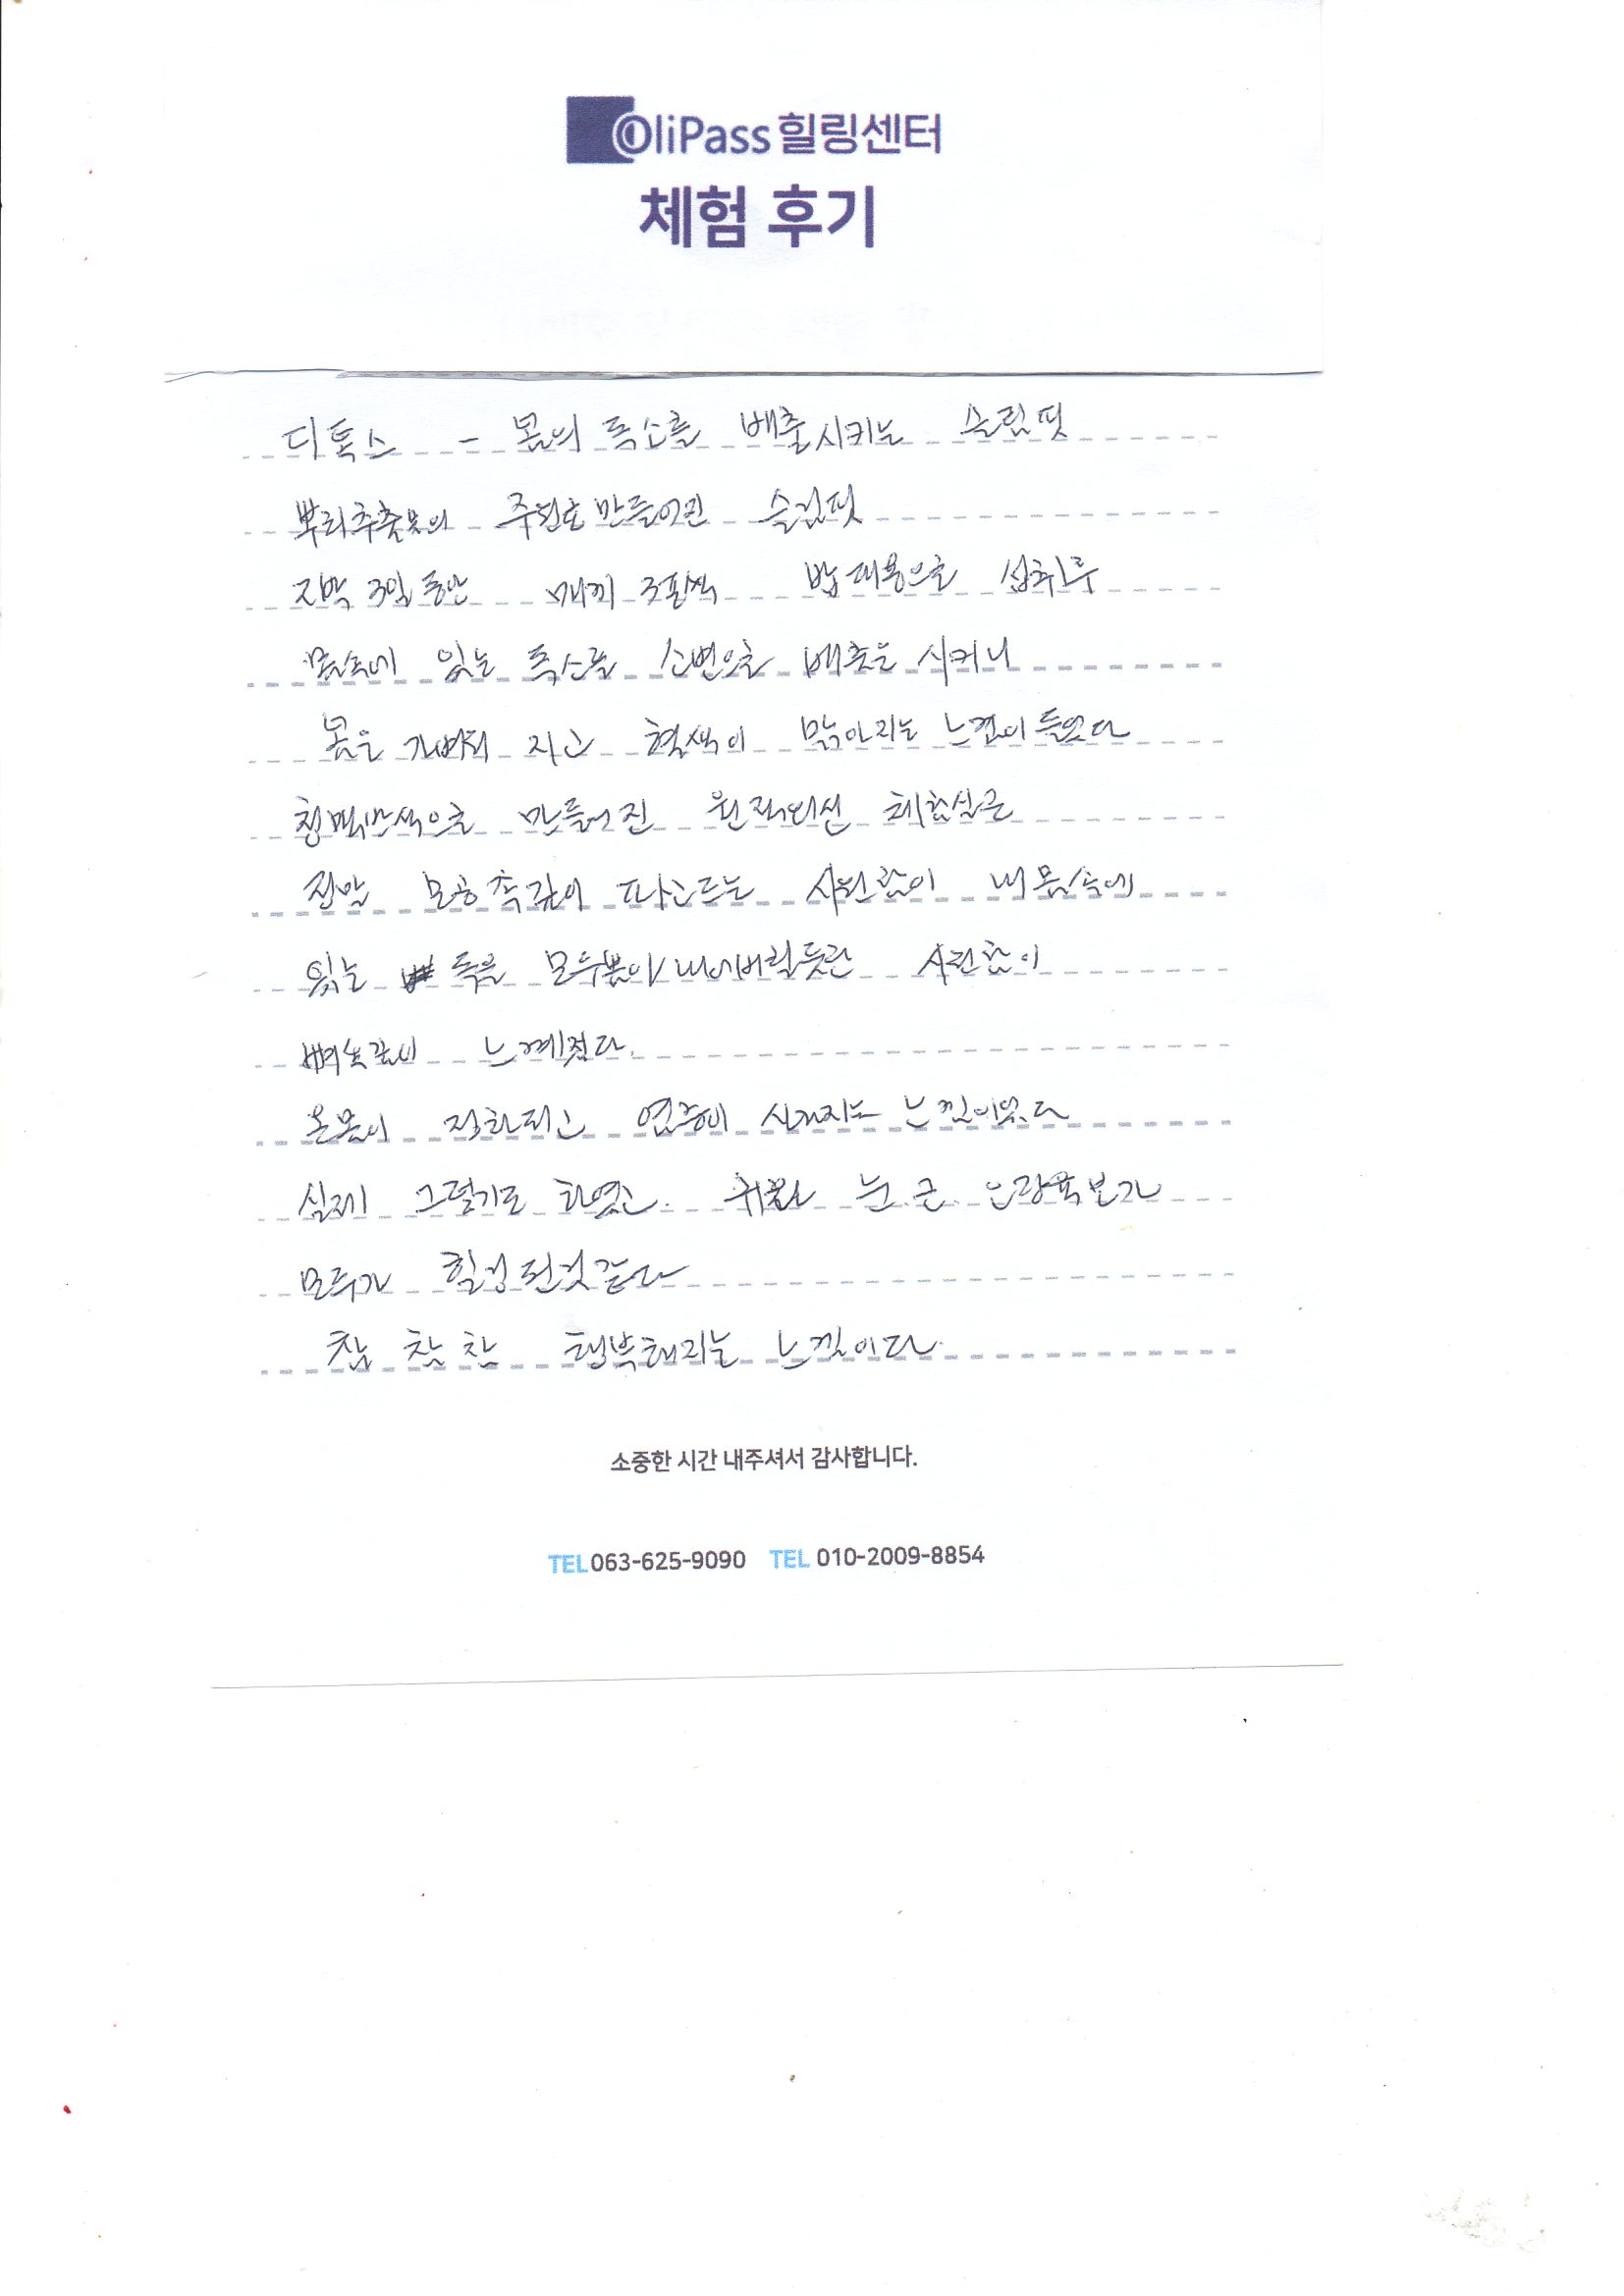 OliPass 힐링센터
체험 후기
디톡스 - 몸의 독소를 배출시키는 슬림핏
뿌리추출물의 주원료 만들어진 슬림핏
3일 동안 매끼 3포씩 밥 대용으로 섭취후
몸속에 있는 독소를 소변으로 배출을 시키니
몸은 가벼워 지고 혈색이 맑아지는 느낌이 들었다
만들어진 원적외선 체험실은
정말 모공 촉감이 파고드는 시원함이 내 몸속에
있는 독을 모두뽑아 내어버릴듯한 시원함이
느껴졌다.
온몸이 정화되고 염증이 느낌이었다
실제 그렇기도 하였고. 눈.
모두가 힐링 된것 같다
참 참 참 행복해지는 느낌이다.
소중한 시간 내주셔서 감사합니다.
TEL 063-625-9090 TEL 010-2009-8854